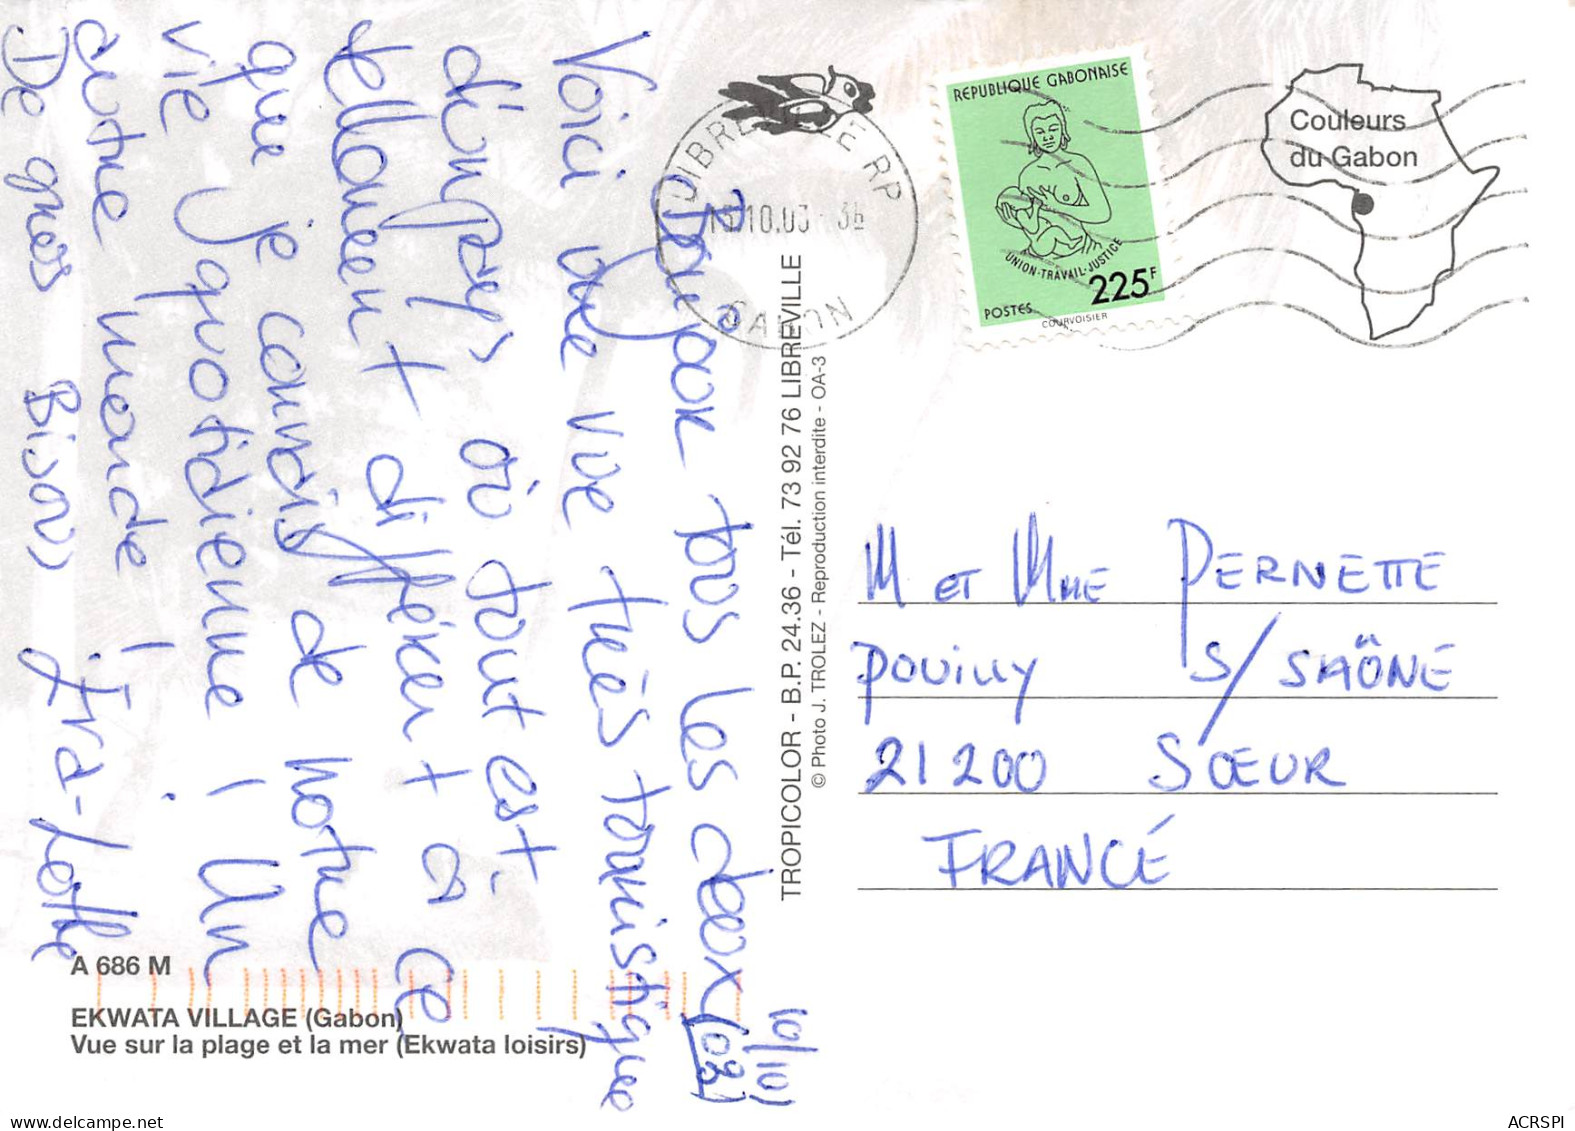 10/10/03
Bonjour tous les deux
Voici une vue très touristique
d'un pays où tout est
tellement différent à ce
que je connais de notre
vie quotidienne ! Un
autre monde !
De gros Bisous
LIBREVILLE RP
10.03
GABON
REPUBLIQUE GABONAISE
UNION-TRAVAIL-JUSTICE
225F
POSTES
COURVOISIER
Couleurs
du Gabon
TROPICOLOR - B.P. 24.36 - Tél. 73 92 76 LIBREVILLE
© Photo J. TROLEZ - Reproduction interdite - OA-3
M ET MME PERNETTE
POUILLY S/ SAÔNE
21200 SŒUR
FRANCE
A 686 M
EKWATA VILLAGE (Gabon)
Vue sur la plage et la mer (Ekwata loisirs)
ACRSPI